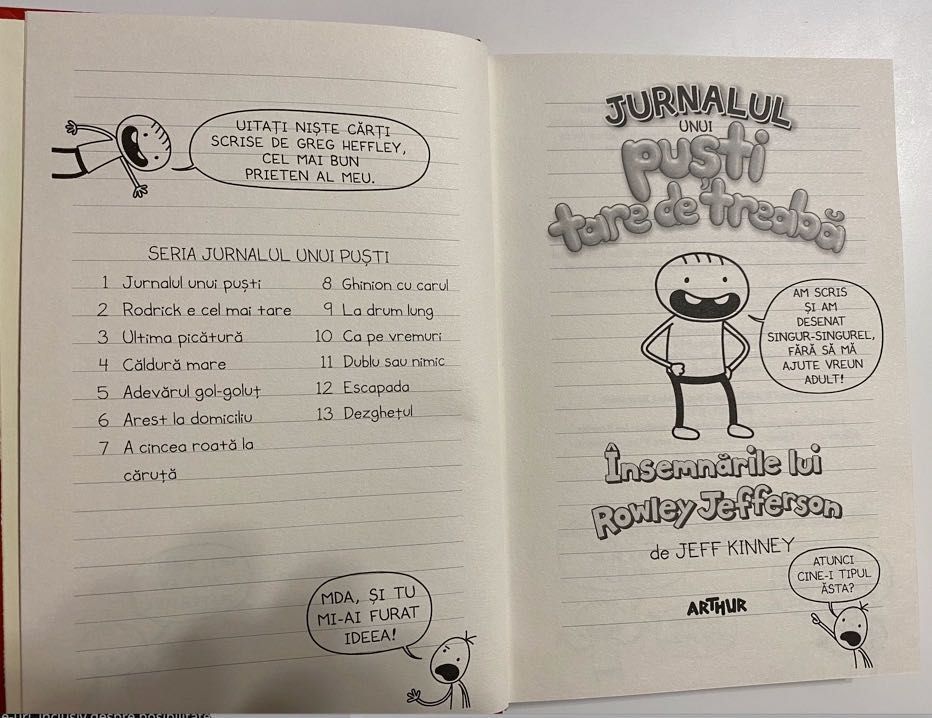 UITAȚI NIȘTE CĂRȚI
SCRISE DE GREG HEFFLEY,
CEL MAI BUN
PRIETEN AL MEU.
SERIA JURNALUL UNUI PUȘTI
1 Jurnalul unui puști
2 Rodrick e cel mai tare
3 Ultima picătură
4 Căldură mare
5 Adevărul gol-goluț
6 Arest la domiciliu
7 A cincea roată la
căruță
8 Ghinion cu carul
9 La drum lung
10 Ca pe vremuri
11 Dublu sau nimic
12 Escapada
13 Dezghețul
MDA, ȘI TU
MI-AI FURAT
IDEEA!
JURNALUL
UNUI
puști
tare de treabă
AM SCRIS
ȘI AM
DESENAT
SINGUR-SINGUREL,
FĂRĂ SĂ MĂ
AJUTE VREUN
ADULT!
Însemnările lui
Rowley Jefferson
de JEFF KINNEY
ATUNCI
CINE-I TIPUL
ĂSTA?
ARTHUR